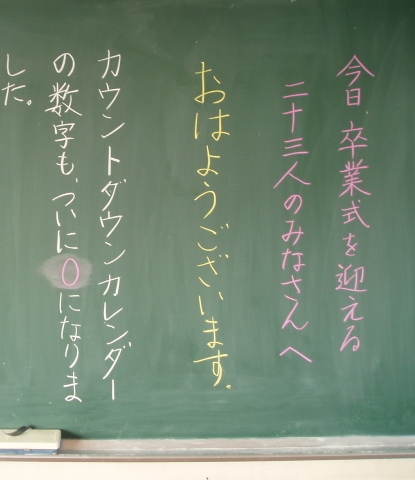 今日、卒業式を迎える
二十三人のみなさんへ
おはようございます。
カウントダウンカレンダー
の数字も、ついに0になりま
した。